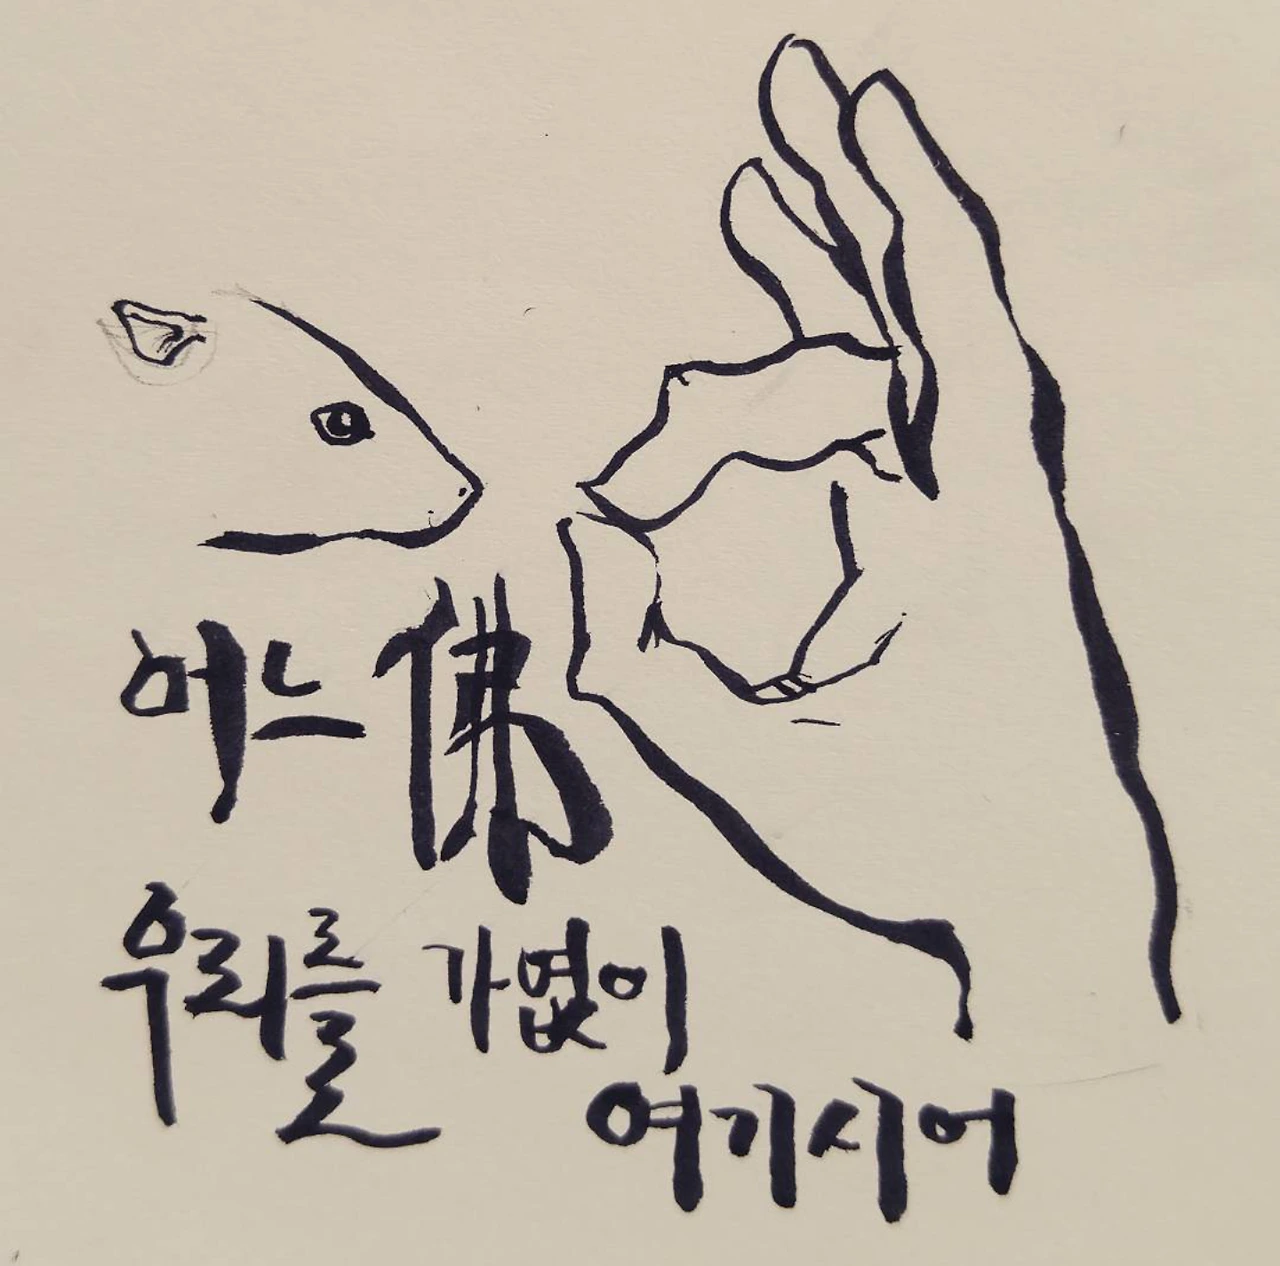 어느 佛
우리를 가엾이
여기시어